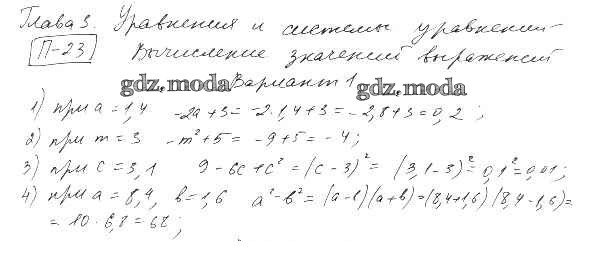 Глава 3. Уравнения и системы уравнений
П-23 Вычисление значений выражений
Вариант 1
gdz.moda gdz.moda
1) при a = 1,4 -2a+3 = -2·1,4+3 = -2,8+3 = 0,2 ;
2) при m = 3 -m²+5 = -9+5 = -4;
3) при c = 3,1 9-6c+c² = (c-3)² = (3,1-3)² = 0,1² = 0,01;
4) при a = 8,4, b = 1,6 a²-b² = (a-b)(a+b) = (8,4+1,6)(8,4-1,6) =
= 10·6,8 = 68 ;